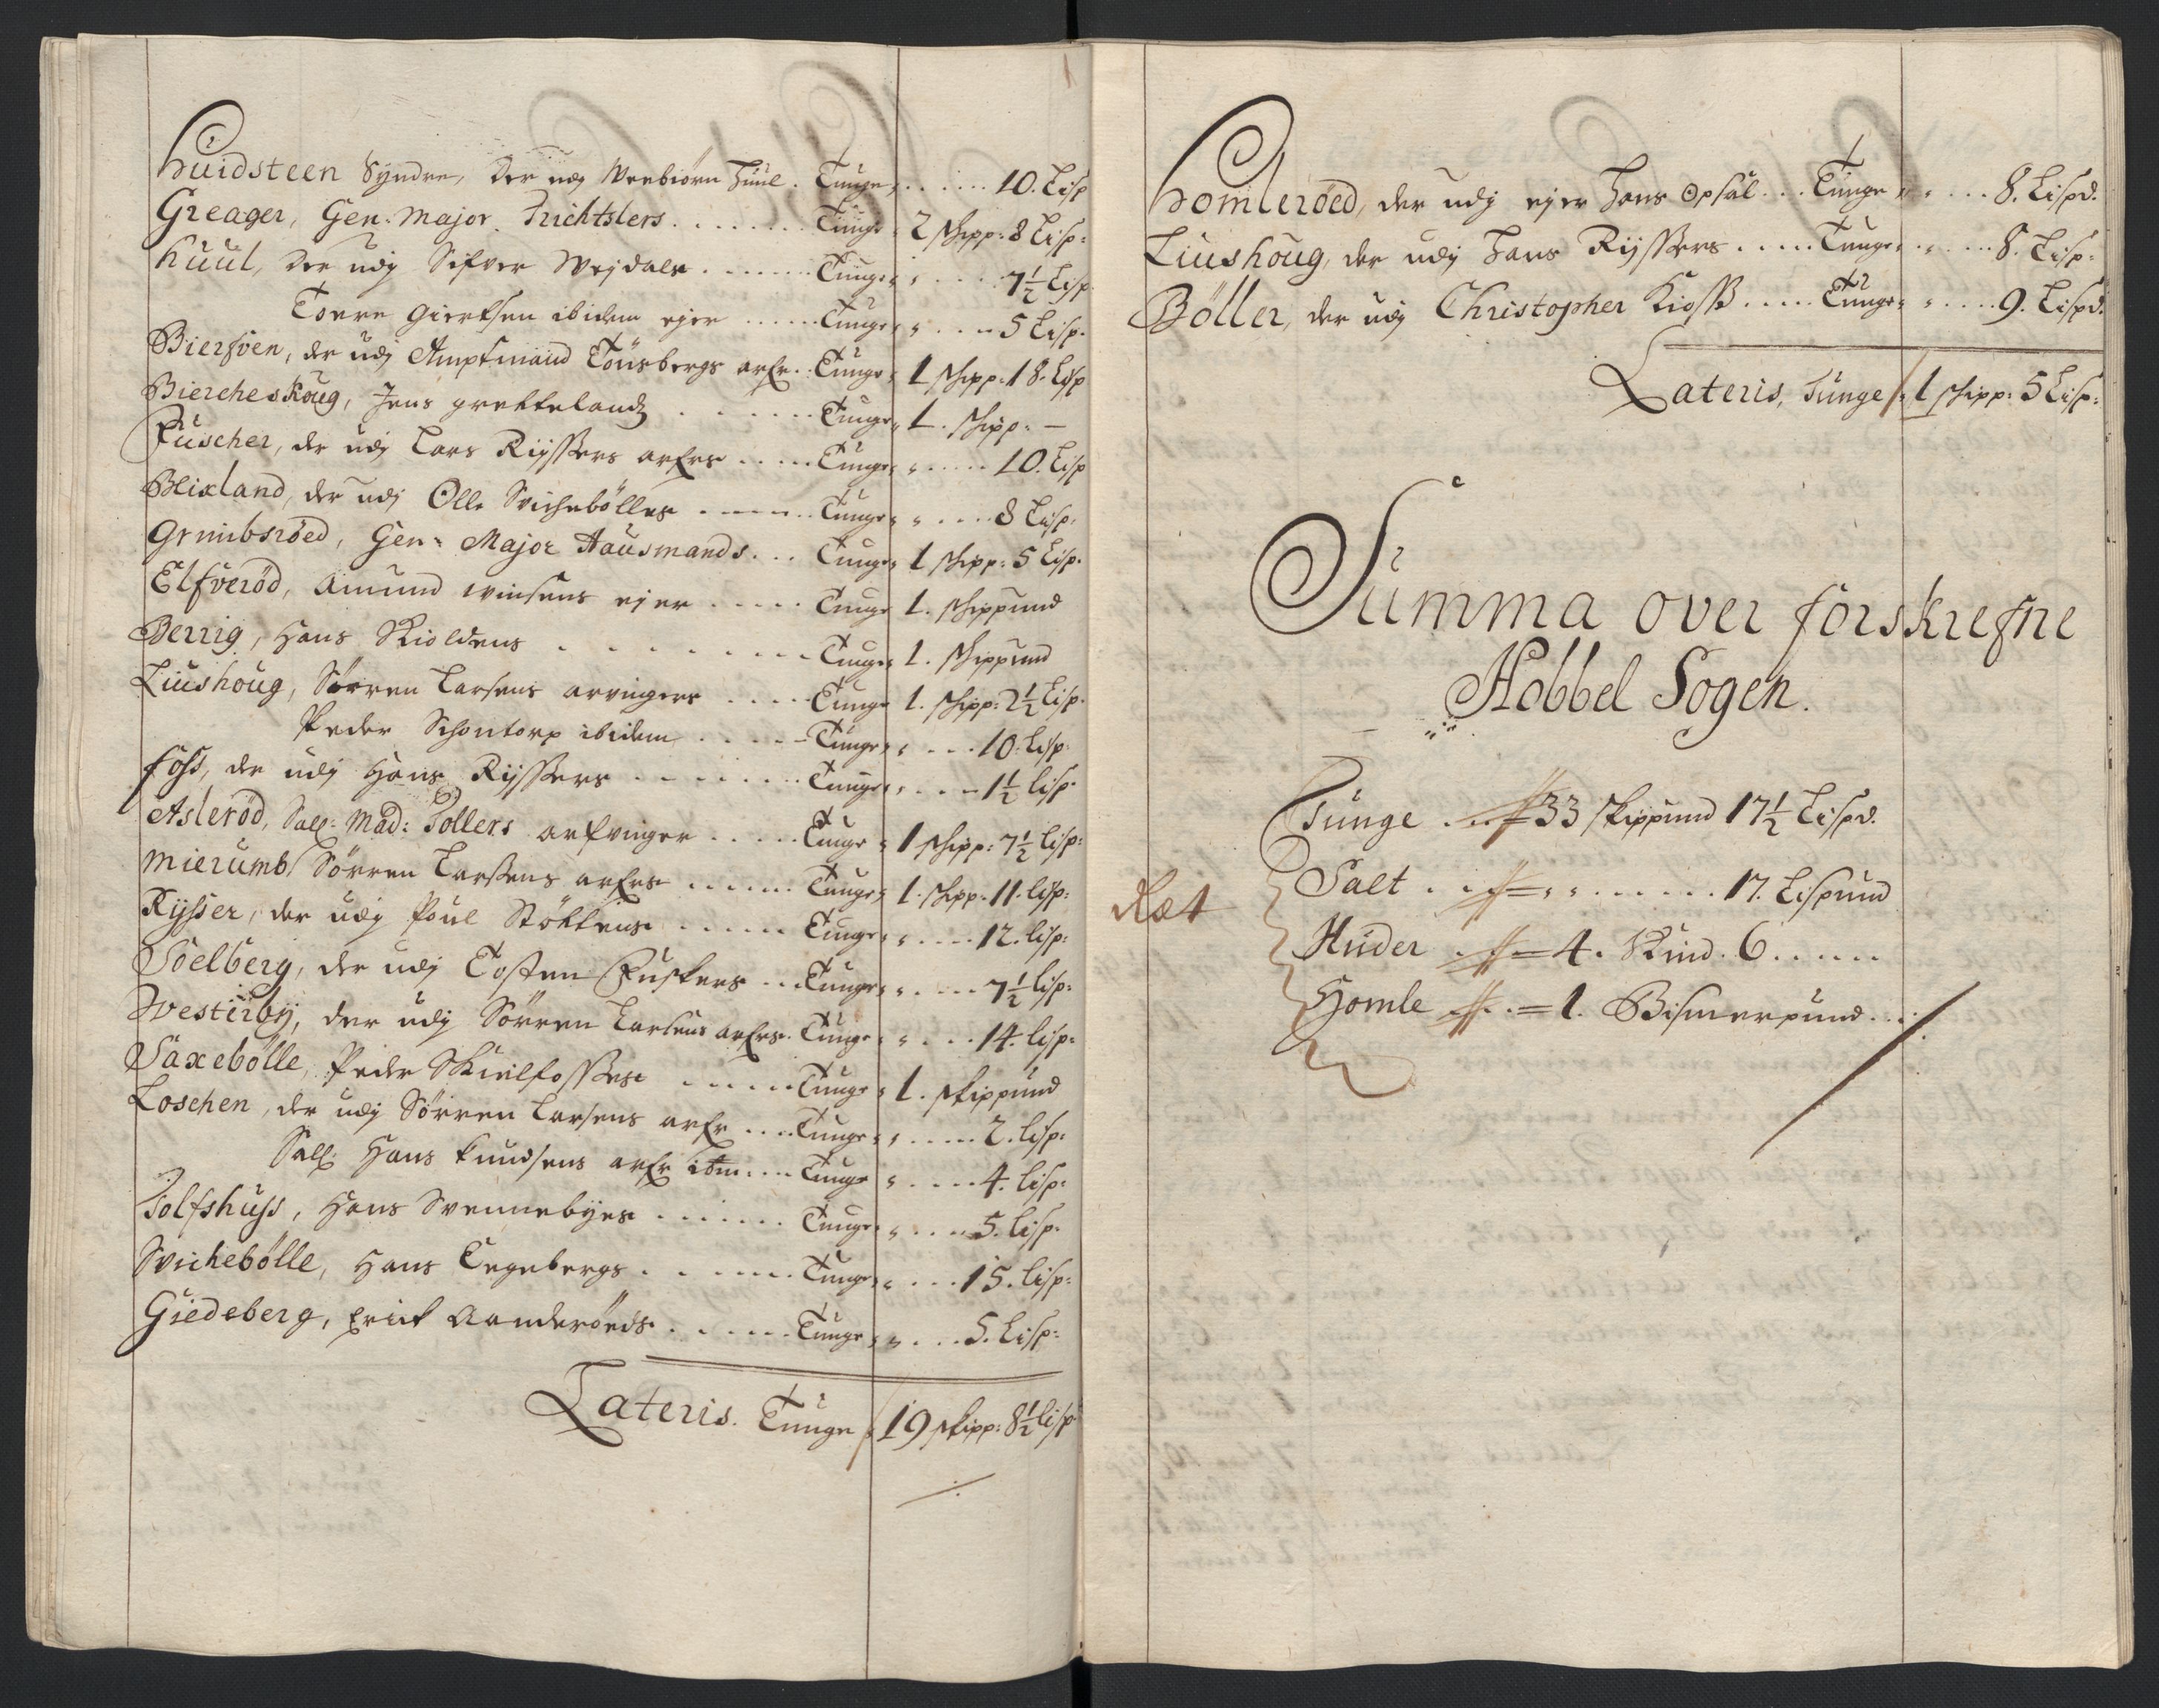 Huidsteen Syndre, der udj Verbiørn Huul . Tunge „ . . . . 10. Lisp
Greager, Gen: Major Trichtslers . . . . . . . Tunge 2 Schipp: 8 Lisp:
Huul, der udj Sifver Wejdals . . . . . . . Tunge „ . . . . 7½ Lisp
Torre Giertsen ibidem ejer . . . . . . Tunge „ . . . . 5 Lisp.
Bierfven, der udj Amptmand Tönsbergs arfr. . Tunge 1 Schipp: 18. Lisp
Biercheskoug, Jens grettelandz . . . . . . Tunge 1. Schipp: —
Fuscher, der udj Lars Rijssers arfrs . . . . . Tunge „ . . . . 10. Lisp
Blixland, der udj Olle Svichebølles . . . . . Tunge „ . . . . 8 Lisp.
Grimbsrøed, Gen: Major Hausmands . . . Tunge 1 Schipp: 5 Lisp.
Elfverød, Amund winsens ejer . . . . . Tunge 1. Schippund
Berrig, Hans Skioldens . . . . . . . . . Tunge 1. Schippund
Liushoug, Sørren Larsens arvingers . . . . . Tunge 1. Schipp: 2½ Lisp.
Peder Schontorp ibidem . . . . . Tunge „ . . . 10. Lisp.
Foss, der udj Hans Rijssers . . . . . . . Tunge „ . . . 1½ Lisp.
Aslerød, Sall: Mad: Tollers arfvinger . . . . . Tunge 1 Schipp: 7½ Lisp:
Mierumb Sørren Larsens arfrs . . . . . . Tunge 1. Schipp: 11. Lisp:
Rysser, der udj Poul Støttens . . . . . . Tunge „ . . . . 12. Lisp:
Soelberg, der udj Tosten Fuskers . . . Tunge „ . . . . 7½ Lisp:
Westerby, der udj Sørren Larsens arfrs. Tunge „ . . . 14. Lisp:
Saxebølle, Peder Skielfosses . . . . . . Tunge 1. Skippund
Loschen, der udj Sørren Larsens arfr . . . . Tunge „ . . . . . 2. Lisp:
Sall: Hans Knudsens arfr ibm . . . . Tunge „ . . . . 4. Lisp:
Tolfshuss, Hans Svennebyes . . . . . . . Tunge „ . . . 5. Lisp.
Svichebølle, Hans Tegebergs . . . . . . . Tunge „ . . . 15. Lisp:
Giedeberg, Erick Aanderøeds . . . . . . . Tunge „ . . . 5. Lisp:
Lateris. Tunge 19 Skipp: 8½ Lisp
Homlerøed, der udj ejer Hans Opsal . . . Tunge „ . . . 8. Lispd.
Liushoug, der udj Hans Rijssers . . . . . Tunge „ . . . 8. Lisp:
Bøller, der udj Christopher Kioss . . . . . Tunge „ . . . . 9. Lispd.
Lateris, Tunge 1 Schipp: 5 Lisp:
Summa over forskrefne
Hobbel Sogen.
Tunge . . . 33 Skippund 17½ Lispd.
Salt . . . „ „ . . . . . . 17. Lispund
Ræt
Huder . . . 4. Skind. 6 . . . . . .
Homle . . . 1. Bismerpund . . .